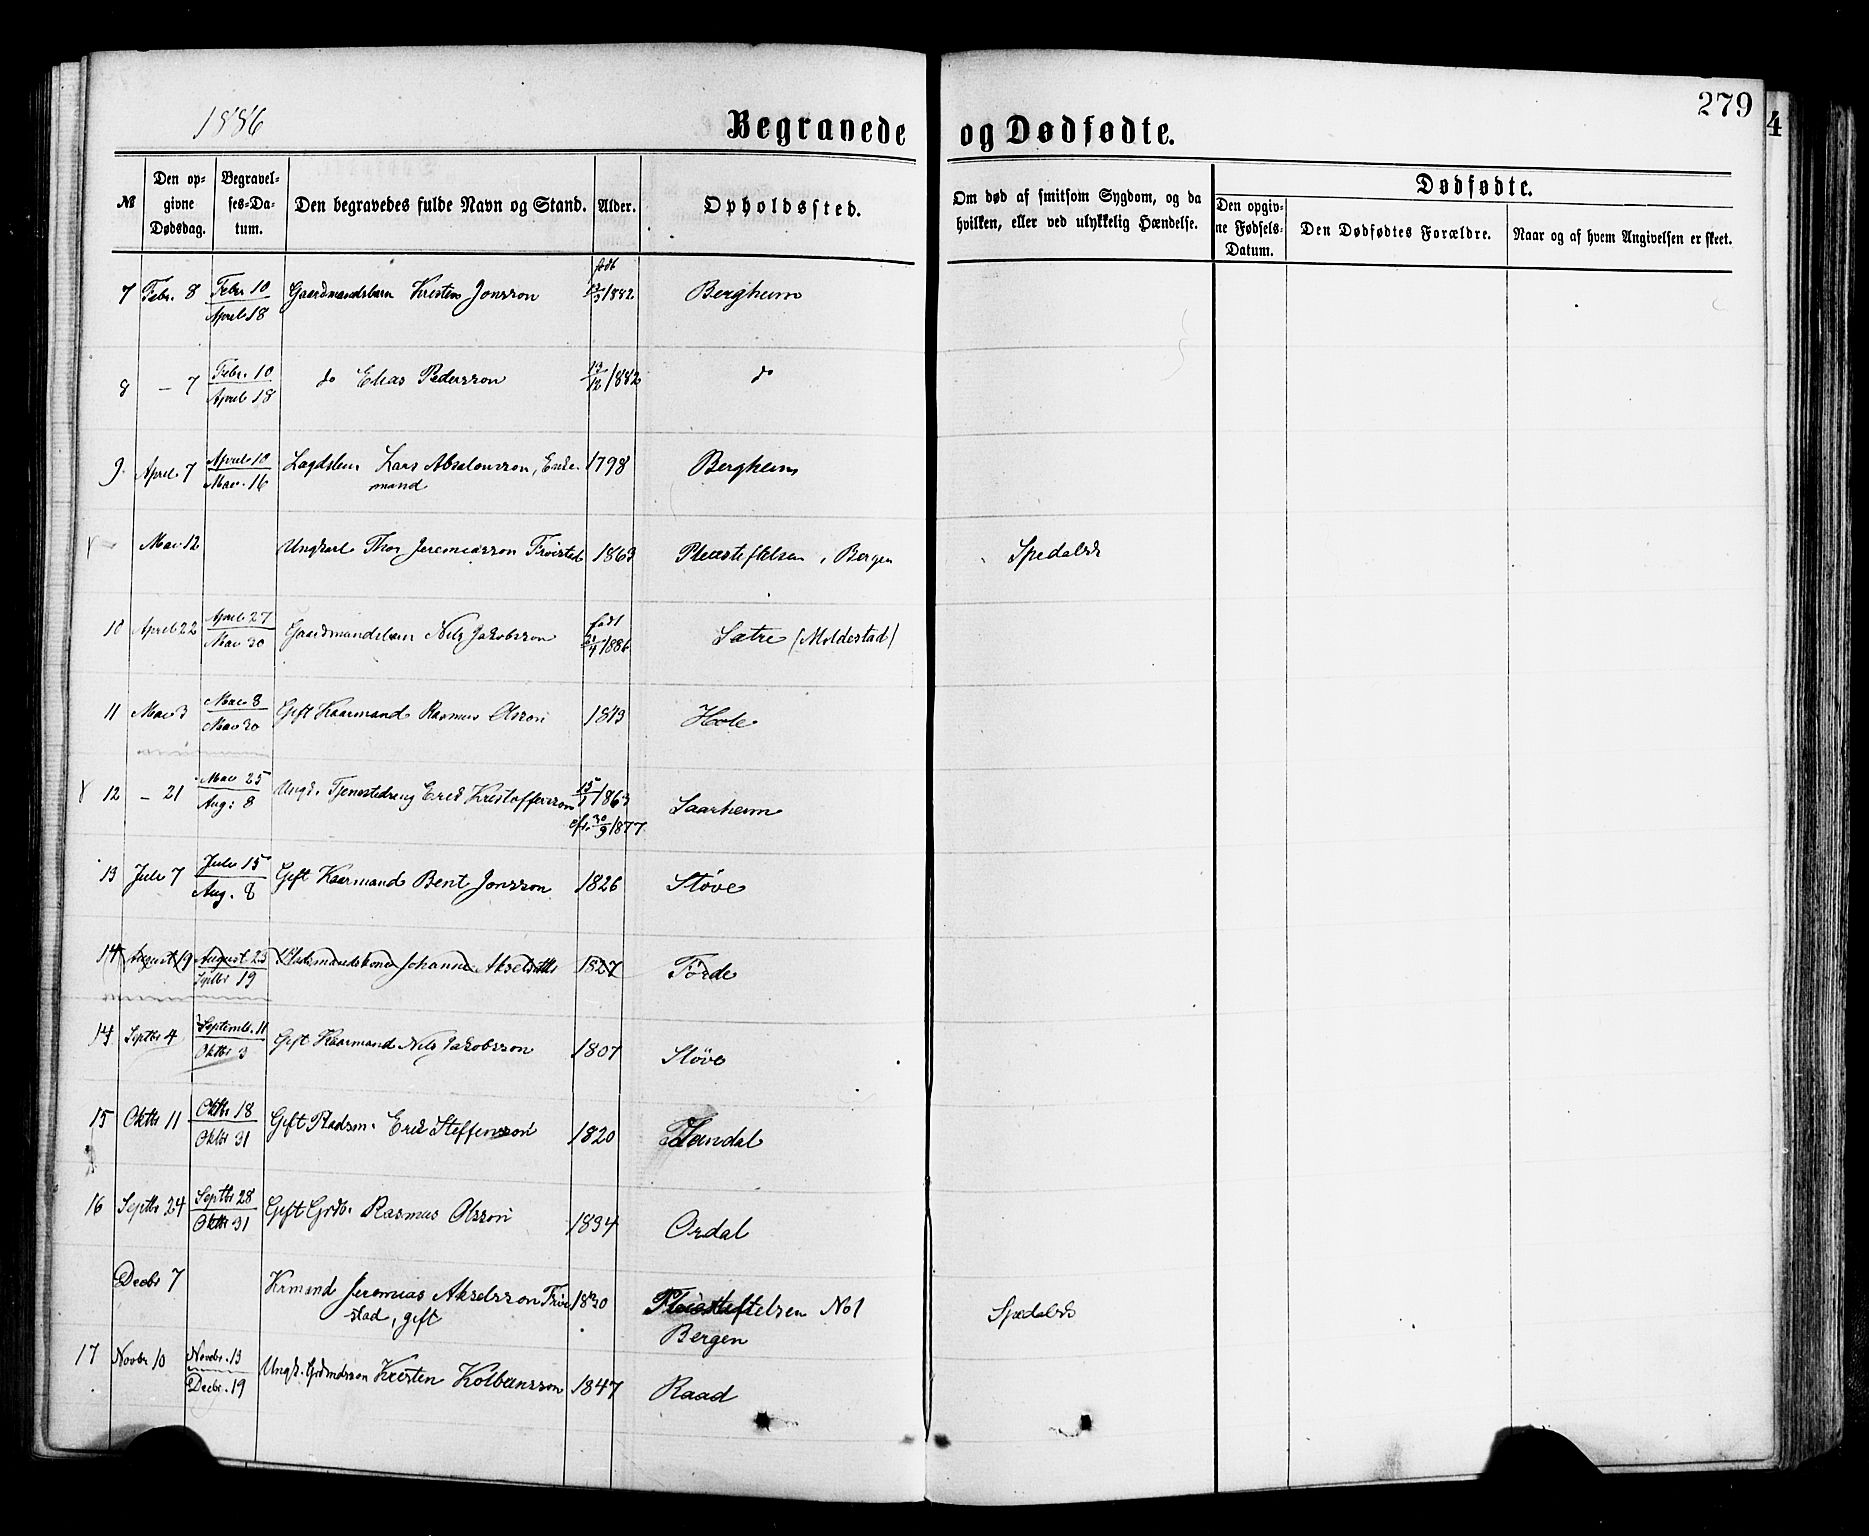 279
4
1886
Begravede og Dødfødte.
№
Den op-
givne
Dødsdag.
Begravel-
ses-Da-
tum.
Den begravedes fulde Navn og Stand.
Alder.
Opholdssted.
Om død af smitsom Sygdom, og da
hvilken, eller ved ulykkelig Hændelse.
Dødfødte.
Den opgiv-
ne Fødsels-
Datum.
Den Dødfødtes Forældre.
Naar og af hvem Angivelsen er skeet.
7 Febr. 8 Febr 10 April 18 Gaardmandsbarn Kristen Jonsson født 1882 Bergheim
8 – 7 Febr. 10 April 18 do Elias Pedersson 12/1882 do
9. April 7 April 10 Mai 16 Lars Absalonsson, Enke- 1798 Bergheim
mand
Mai 12 Ungkarl Thor Jeremiasson Troistad 1863 Pleiestiftelsen, Bergen Spedalsk
10 April 22 April 27 Mai 30 Gaardmandsbarn Nils Jakobsson født 4/1886 Sætre (Moldestad)
11 Mai 3 Mai 8 Mai 30 Gift Kaarmand Rasmus Olsson 1813 Hole
12 – 21 Mai 25 Aug: 8 Ungk. Tjenestedreng Erik Kristoffersson 15/1 1863 Saarheim
cfr. 30/9 1877
13 Juli 7 Juli 15 Aug. 8 Gift Kaarmand Bent Jonsson 1826 Støve
14 August 19 August 23 Septbr 19 Pladsmandskone Johanne Akselsdtr 1827 Førde
14 Septbr 4 Septemb. 11 Oktbr 3 Gift Kaarmand Nils Jakobsson 1807 Støve
15 Oktbr 11 Oktbr 18 Oktbr 31 Gift Pladsm. Erik Steffensson 1820
16 Septbr 24 Septbr 28 Oktbr 31 Gift Grdb. Rasmus Olsson 1834 Ordal
Decbr 7 Krmand Jeremias Akselsson Troi- 1820 Pleiestiftelsen No 1 Spedalsk
stad, gift Bergen
17 Novbr 10 Novbr. 13 Decbr. 19 Ungk. Grdmdssøn Kristen Kolbeinsson 1847 Raad